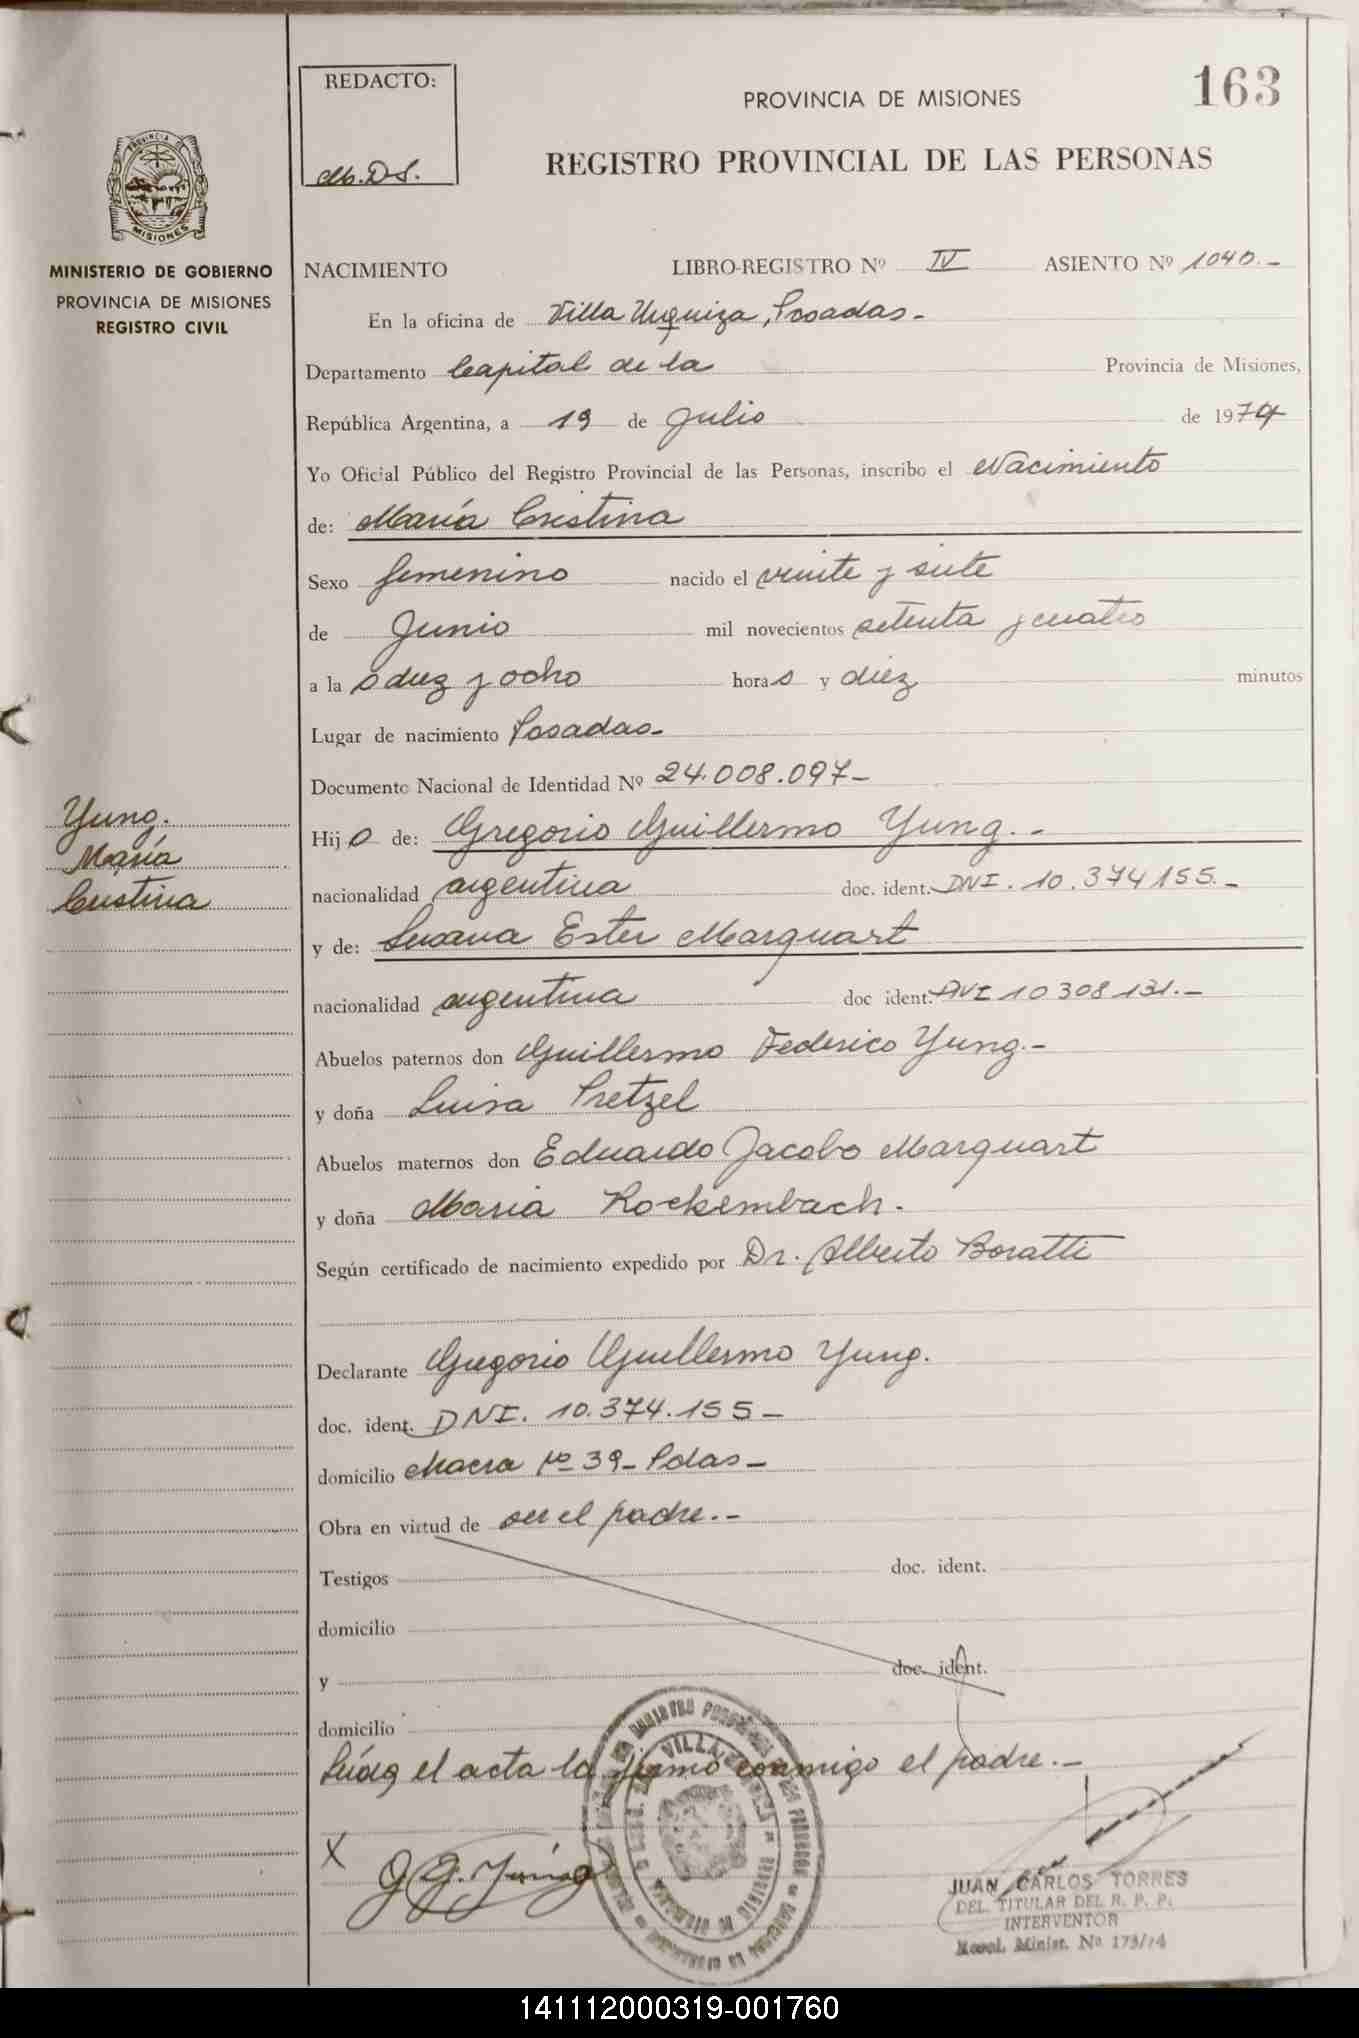 REDACTO:
Mb. D S.
163
PROVINCIA DE MISIONES
REGISTRO PROVINCIAL DE LAS PERSONAS
PROVINCIA DE
MISIONES
MINISTERIO DE GOBIERNO
PROVINCIA DE MISIONES
REGISTRO CIVIL
NACIMIENTO LIBRO-REGISTRO Nº IV ASIENTO Nº 1040.-
En la oficina de Villa Urquiza, Posadas.-
Departamento Capital de la Provincia de Misiones,
República Argentina, a 19 de Julio de 1974
Yo Oficial Público del Registro Provincial de las Personas, inscribo el Nacimiento
de: María Cristina
Sexo femenino nacido el veinte y siete
de Junio mil novecientos setenta y cuatro
a la s diez y ocho hora s y diez minutos
Lugar de nacimiento Posadas.-
Documento Nacional de Identidad Nº 24.008.097-
Yung.
María
Cristina
Hij o de: Gregorio Guillermo Yung.-
nacionalidad argentina doc. ident. DNI. 10.374155.-
y de: Susana Ester Marquart
nacionalidad argentina doc ident. DNI 10308131.-
Abuelos paternos don Guillermo Federico Yung.-
y doña Luisa Pretzel
Abuelos maternos don Eduardo Jacobo Marquart
y doña Maria Rockembach.
Según certificado de nacimiento expedido por Dr. Alberto Boratti
Declarante Gregorio Guillermo Yung.
doc. ident. DNI. 10.374.155-
domicilio Chacra Nº 39- Pdas-
Obra en virtud de ser el padre.-
Testigos doc. ident.
domicilio
y doc. ident.
domicilio
Leída el acta la firmo conmigo el padre.-
X G. G. Yung
JUAN CARLOS TORRES
DEL. TITULAR DEL R. P. P.
INTERVENTOR
Resol. Minist. Nº 173/74
141112000319-001760